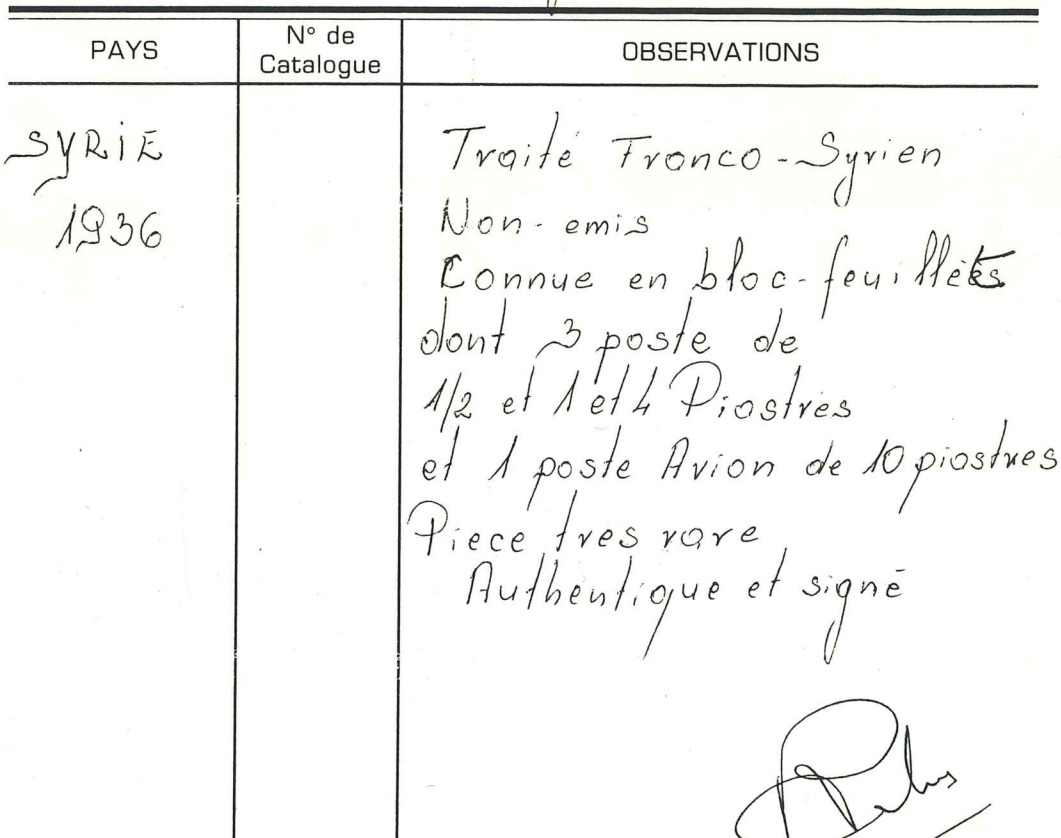 PAYS
N° de
Catalogue
OBSERVATIONS
SYRIE
1936
Traité Franco-Syrien
Non-emis
Connue en bloc-feuillets
dont 3 poste de
1/2 et 1 et 4 Piastres
et 1 poste Avion de 10 piastres
Piece tres rare
Authentique et signé